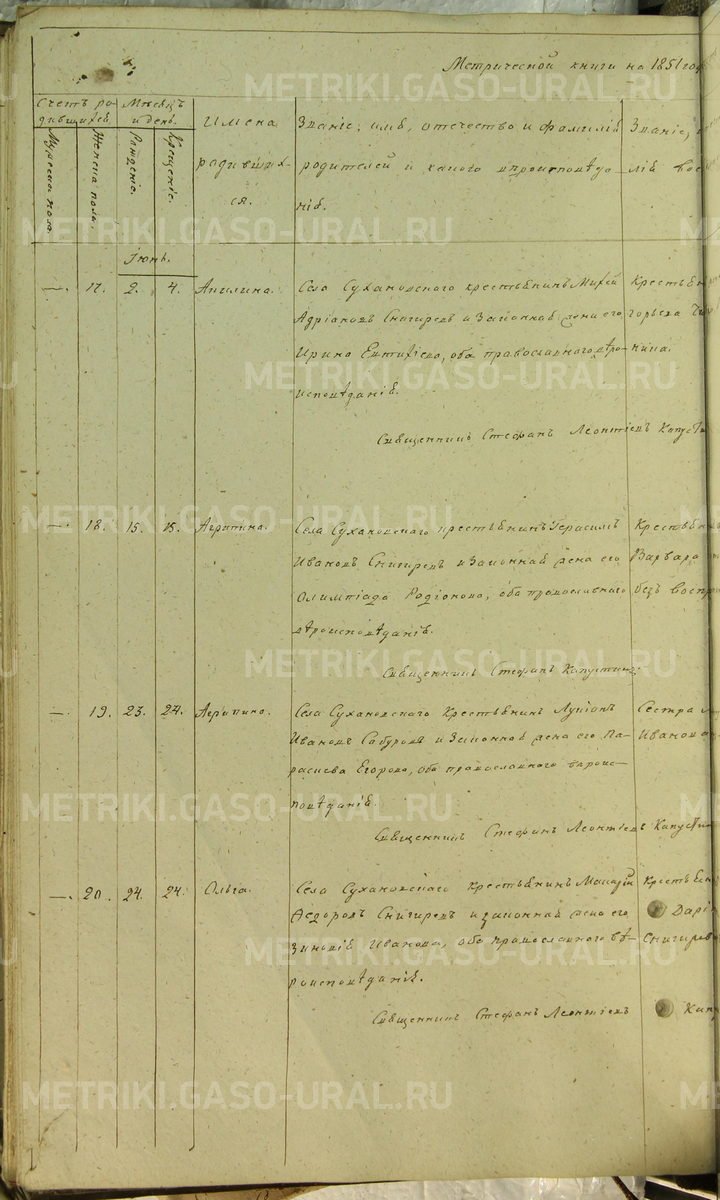 Метрической книги на 1851 год
Счетъ родившихся
Мужеска пола.
Женска пола.
Мѣсяцъ и день.
Рожденіе.
Крещеніе.
Имена родившихся.
Званіе, имя, отечество и фамилія
родителей и какого вѣроисповѣда-
нія.
Званіе,
Іюнь.
— 17. 2. 4. Ангелина.
Села Сухановского крестьянинъ Михей
Адріановъ Снигиревъ и Законная жена его
Ирина Евтифіева, оба православного вѣро-
исповѣданія.
Священникъ Стефанъ Леонтіевъ Капусти
— 18. 15. 15. Агрипина.
Села Сухановскаго крестьянинъ Герасимъ
Ивановъ Снигиревъ и Законная жена его
Олимпіада Родіонова, оба православнаго
вѣроисповѣданія.
Варвара
безъ воспр
Священникъ Стефанъ Капустинъ.
— 19. 23. 24. Агрипина.
Села Сухановского Крестьянинъ Лукіанъ
Ивановъ Сабуровъ и Законная жена его Па-
раскева Егорова, оба православного вѣроис-
повѣданія.
Сестра
Иванова
Священникъ Стефанъ Леонтіевъ Капустин
— 20. 24. 24. Ольга.
Села Сухановскаго крестьянинъ Макарій
Ѳедоровъ Снигиревъ и законная жена его
Зиновія Иванова, оба православного вѣ-
роисповѣданія.
Дарі
Снигирев
Священникъ Стефанъ Леонтіевъ Капу
METRIKI.GASO-URAL.RU